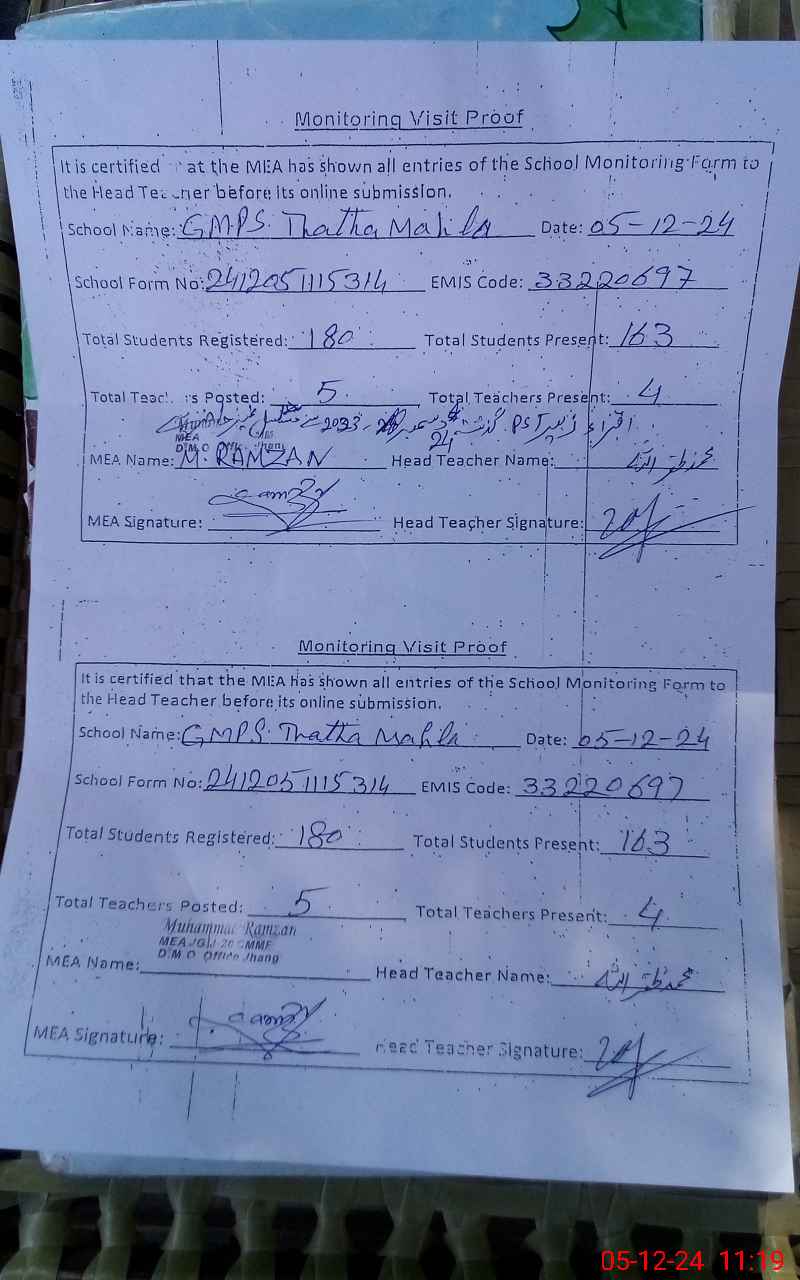 Monitoring Visit Proof
It is certified at the MEA has shown all entries of the School Monitoring Form to
the Head Teacher before its online submission.
School Name: GMPS. Thatha Mahla Date: 05-12-24
School Form No: 2412051115314 EMIS Code: 33220697
Total Students Registered: 180 Total Students Present: 163
Total Teachers Posted: 5 Total Teachers Present: 4
اقراء زبیر PST گذشتہ دسمبر 2023 سے مسلسل غیر حاضر ہے
MEA
D.M.O Office Jhang
MEA Name: M. RAMZAN Head Teacher Name: محمد ظفر اللہ
MEA Signature: Head Teacher Signature:
Monitoring Visit Proof
It is certified that the MEA has shown all entries of the School Monitoring Form to
the Head Teacher before its online submission.
School Name: GMPS. Thatha Mahla Date: 05-12-24
School Form No: 2412051115314 EMIS Code: 33220697
Total Students Registered: 180 Total Students Present: 163
Total Teachers Posted: 5 Total Teachers Present: 4
Muhammad Ramzan
MEA
D.M.O Office Jhang
MEA Name: Head Teacher Name: محمد ظفر اللہ
MEA Signature: Head Teacher Signature:
05-12-24 11:19